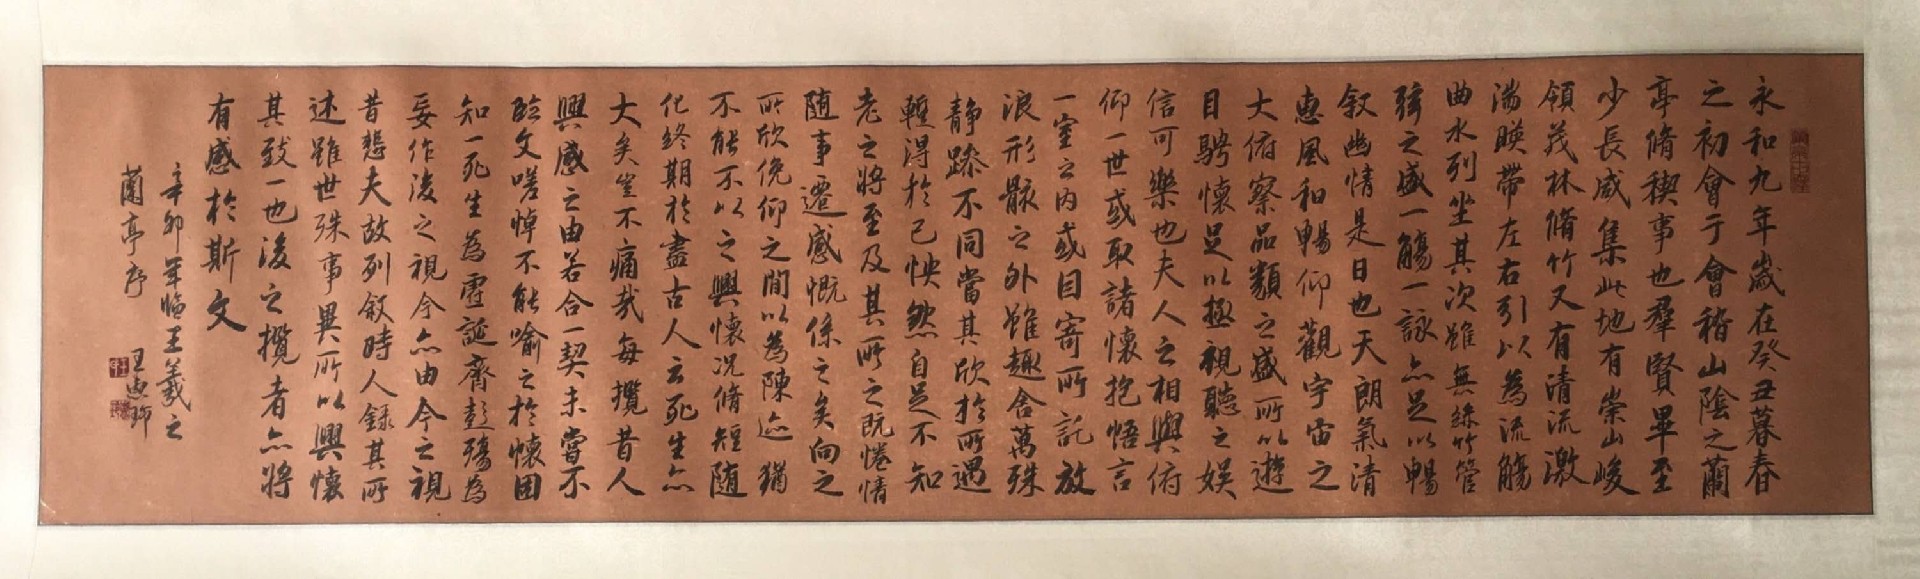 永和九年歲在癸丑暮春
之初會于會稽山陰之蘭
亭脩稧事也羣賢畢至
少長咸集此地有崇山峻
領茂林脩竹又有清流激
湍暎帶左右引以為流觴
曲水列坐其次雖無絲竹管
弦之盛一觴一詠亦足以暢
敘幽情是日也天朗氣清
惠風和暢仰觀宇宙之
大俯察品類之盛所以遊
目騁懷足以極視聽之娛
信可樂也夫人之相與俯
仰一世或取諸懷抱悟言
一室之內或因寄所託放
浪形骸之外雖趣舍萬殊
靜躁不同當其欣於所遇
蹔得於己怏然自足不知
老之將至及其所之既惓情
随事遷感慨係之矣向之
所欣俛仰之間以為陳迹猶
不能不以之興懷況脩短随
化終期於盡古人云死生亦
大矣豈不痛哉每攬昔人
興感之由若合一契未嘗不
臨文嗟悼不能喻之於懷固
知一死生為虛誕齊彭殤為
妄作後之視今亦由今之視
昔悲夫故列敘時人錄其所
述雖世殊事異所以興懷
其致一也後之攬者亦將
有感於斯文
辛卯年臨王羲之
蘭亭序